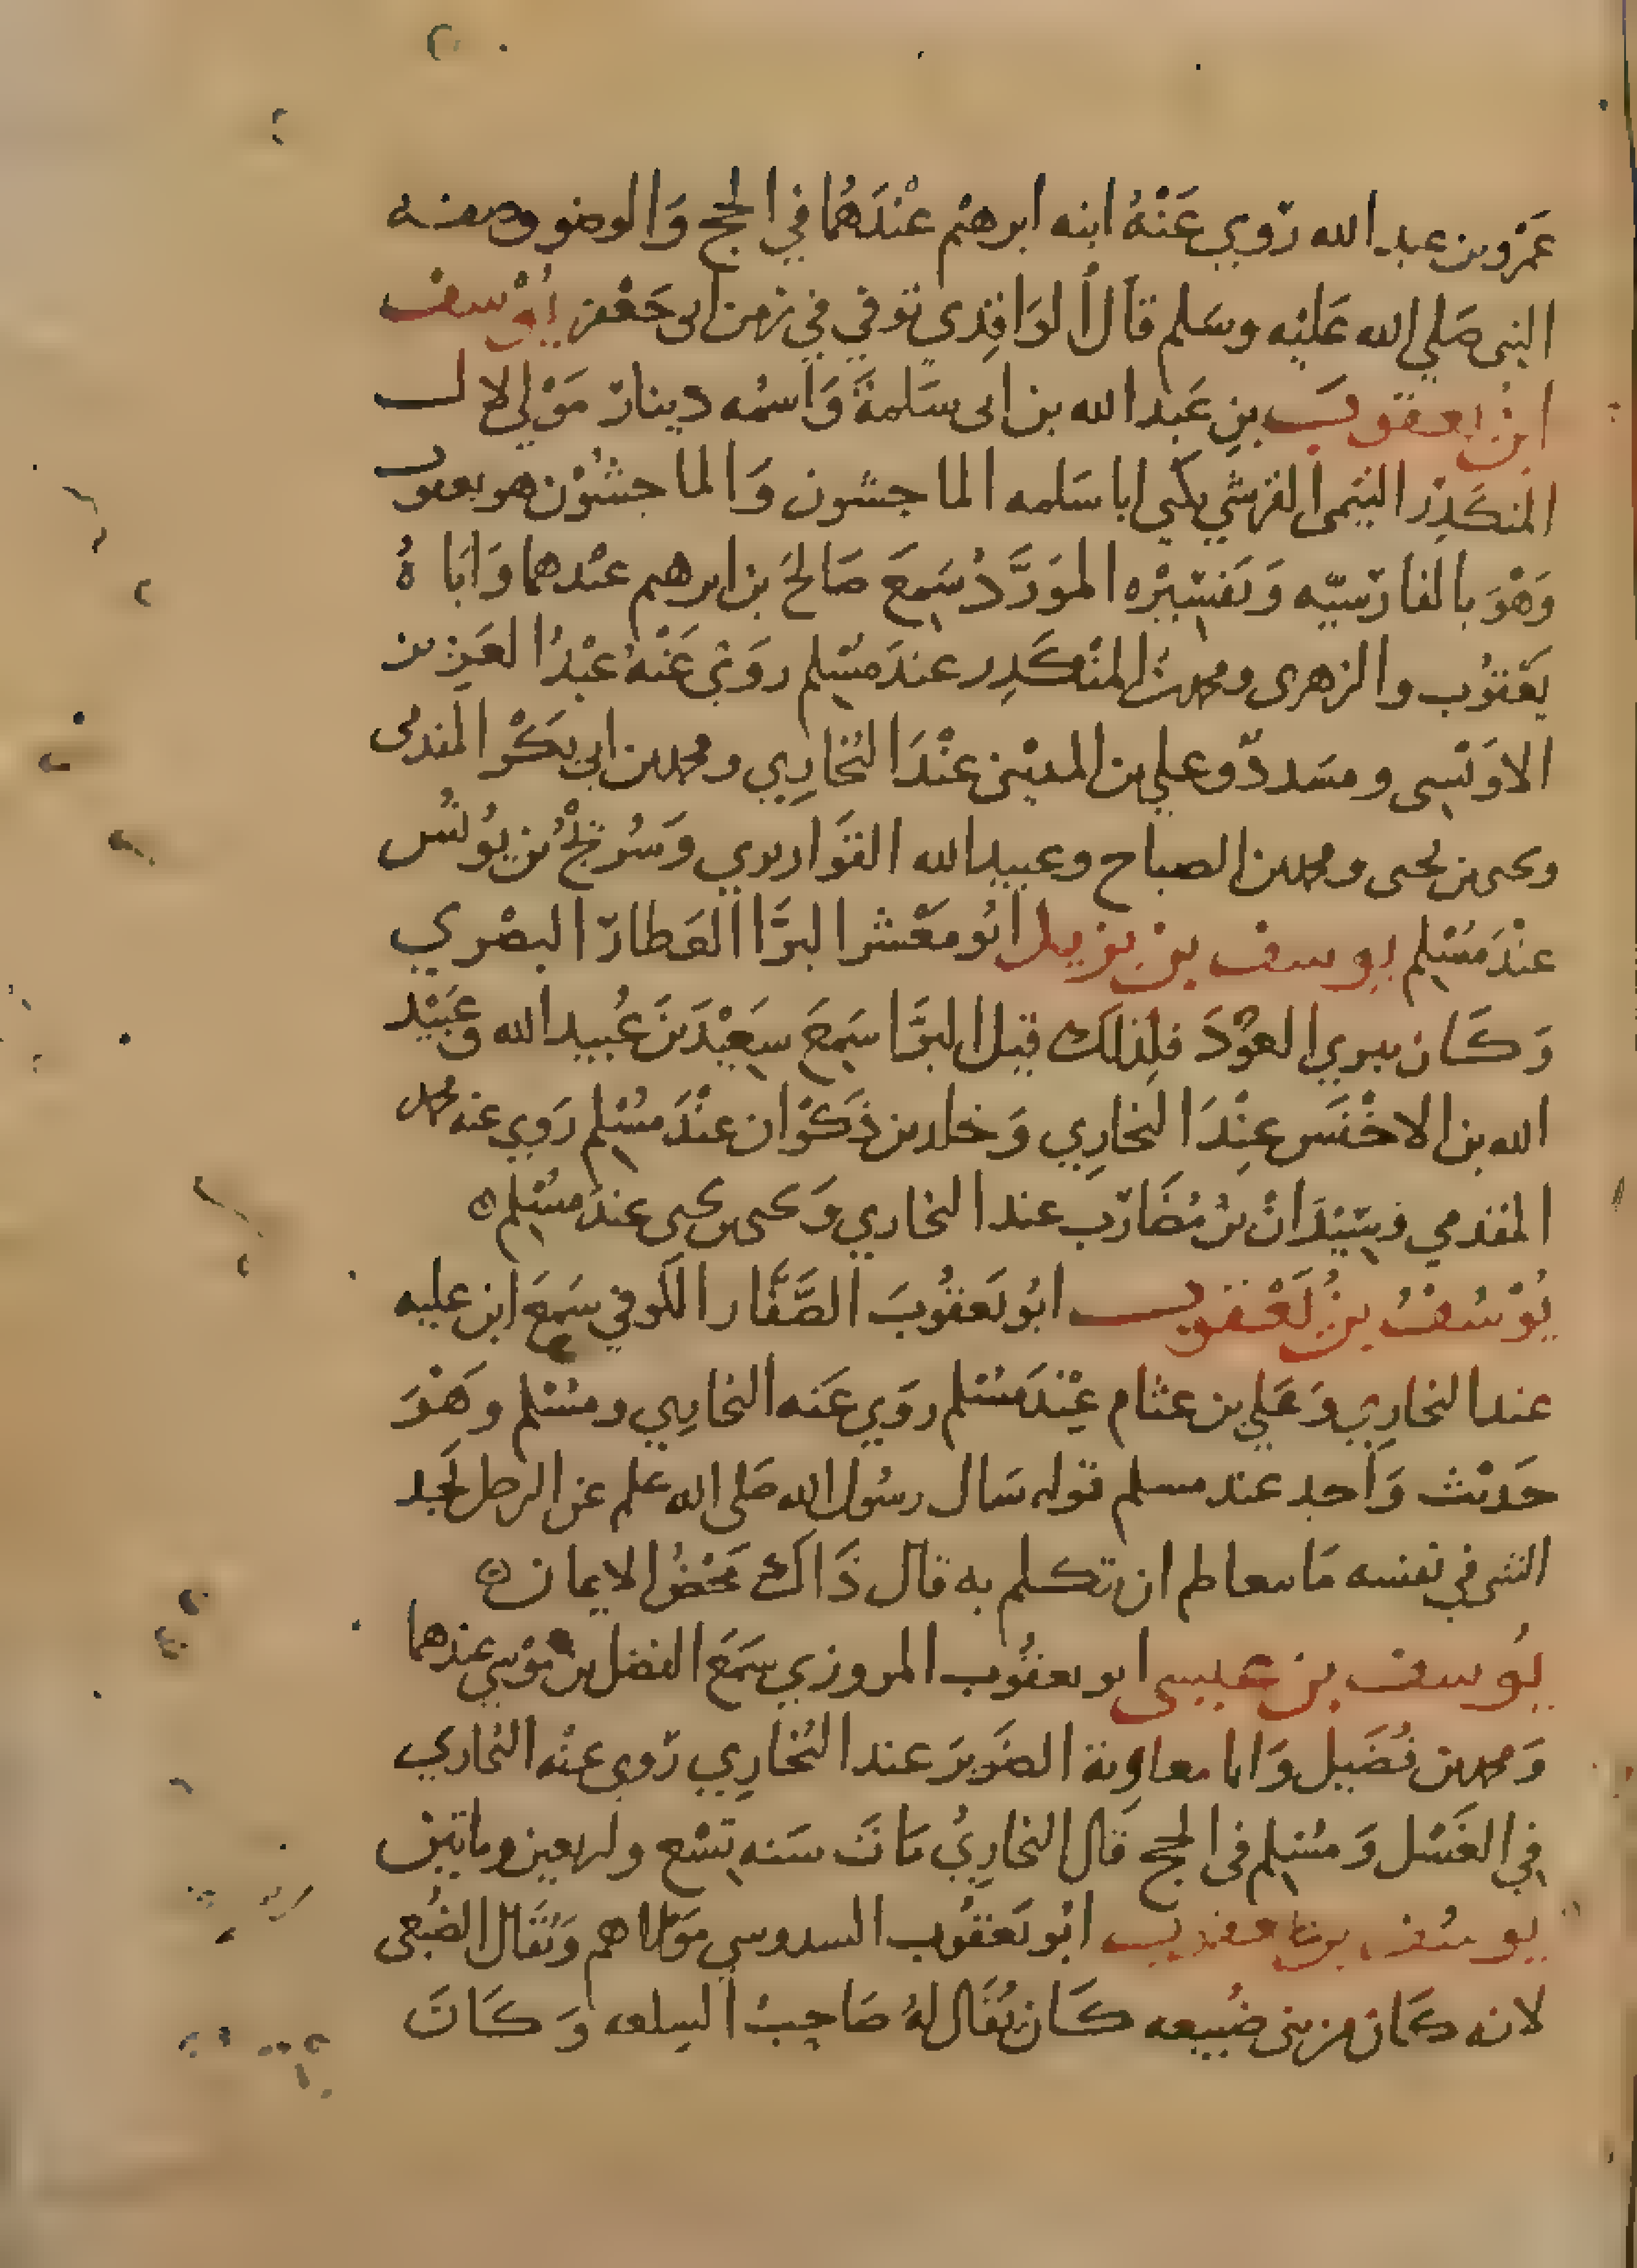 عَمْرو بن عبد الله رَوي عَنْهُ ابنه ابرهيم عنْدَهُما في الحج وَالوضو وصفه
النبى صَلي الله عَليْه وسَلم قاَلَ الوَاقِدي توفي في زمن ابى جَعْفر يُوْسف
ابن يعقوبَ بنِ عَبد الله بن ابى سَلمةَ وَاسمُه دينار مَوْلى لال
المنكَدِر التيمى القرشي يكنى ابا سَلمه الماجشون وَالماجشُوْن هو يعقوب
وَهْوَ بالفارسيّه وَتفسِيْره الموَرَّدُ سَمِعَ صَالحَ بن ابرهيم عندهما وَابَاهُ
يَعْقُوب والزهرى ومحمد بن المنْكَدِر عندَ مسْلم روَى عَنْهُ عبْدُ العَزيز بن
الاوَيْسى ومسَدد وعلي بن المديْنى عنْدَ البُخارِي ومحمد بن ابي بَكْر المقدمى
ويحيى بن يحيى ومحمد بن الصباح وعبيد الله القوَاريري وَسُرَيْجُ بن يُونُس
عنْدَ مُسْلم يوسف بن يزيد ابُو مَعْشر البرَّا العَطار البصْري
وَكَان يبري العوْدَ فلِذلك قيل البرَّا سَمِعَ سَعِيْدَ بنَ عُبيد الله وَعُبَيْد
الله بن الاخْنَس عِنْدَ البخارِي وَخلد بن ذَكوْان عنْدَ مسُلم رَوي عنه محمد
المقدمي وسِيْدَانُ بنُ مُضَارب عند البخاري وَيحيى بن يحيى عندَ مسْلم ه
يُوْسُفُ بنُ يَعْقوب ابُو يَعقُوبَ الصَّفَّار الكوفي سَمِعَ ابن عليه
عند البخارِي وَعَلي بن عثام عِنْدَ مسْلم روَي عَنه البخارِي ومسْلم وهْوَ
حَديْث وَاحِد عند مسلم قوله سَال رسُول الله صَلى الله علم عن الرجل يجد
الشى في نفسه مَا يتعاظم ان تكلم به قال ذَاكَ محْضُ الايمان ه
يُوسف بن عيسى ابو يعقُوب المروزي سَمِعَ الفضل بن مُوْسي عندهما
وَمحمد بن فُضَيل وَابا معاوِية الضَريرَ عند البُخارِي رَوي عنْه البُخاري
فِي الغَسْل وَمسْلم في الحج قَال البخارِيُ مَاتَ سَنه تِسْع واربعين وماتَين
يوسُف بن يعقوب ابُو يَعقُوب السدوسي مَوْلاهم وَيُقَال الضُبعى
لانه كَان من بنى ضُبيعه كَان يُقَال لهُ صَاحِبُ السِلعه وَكَانَ